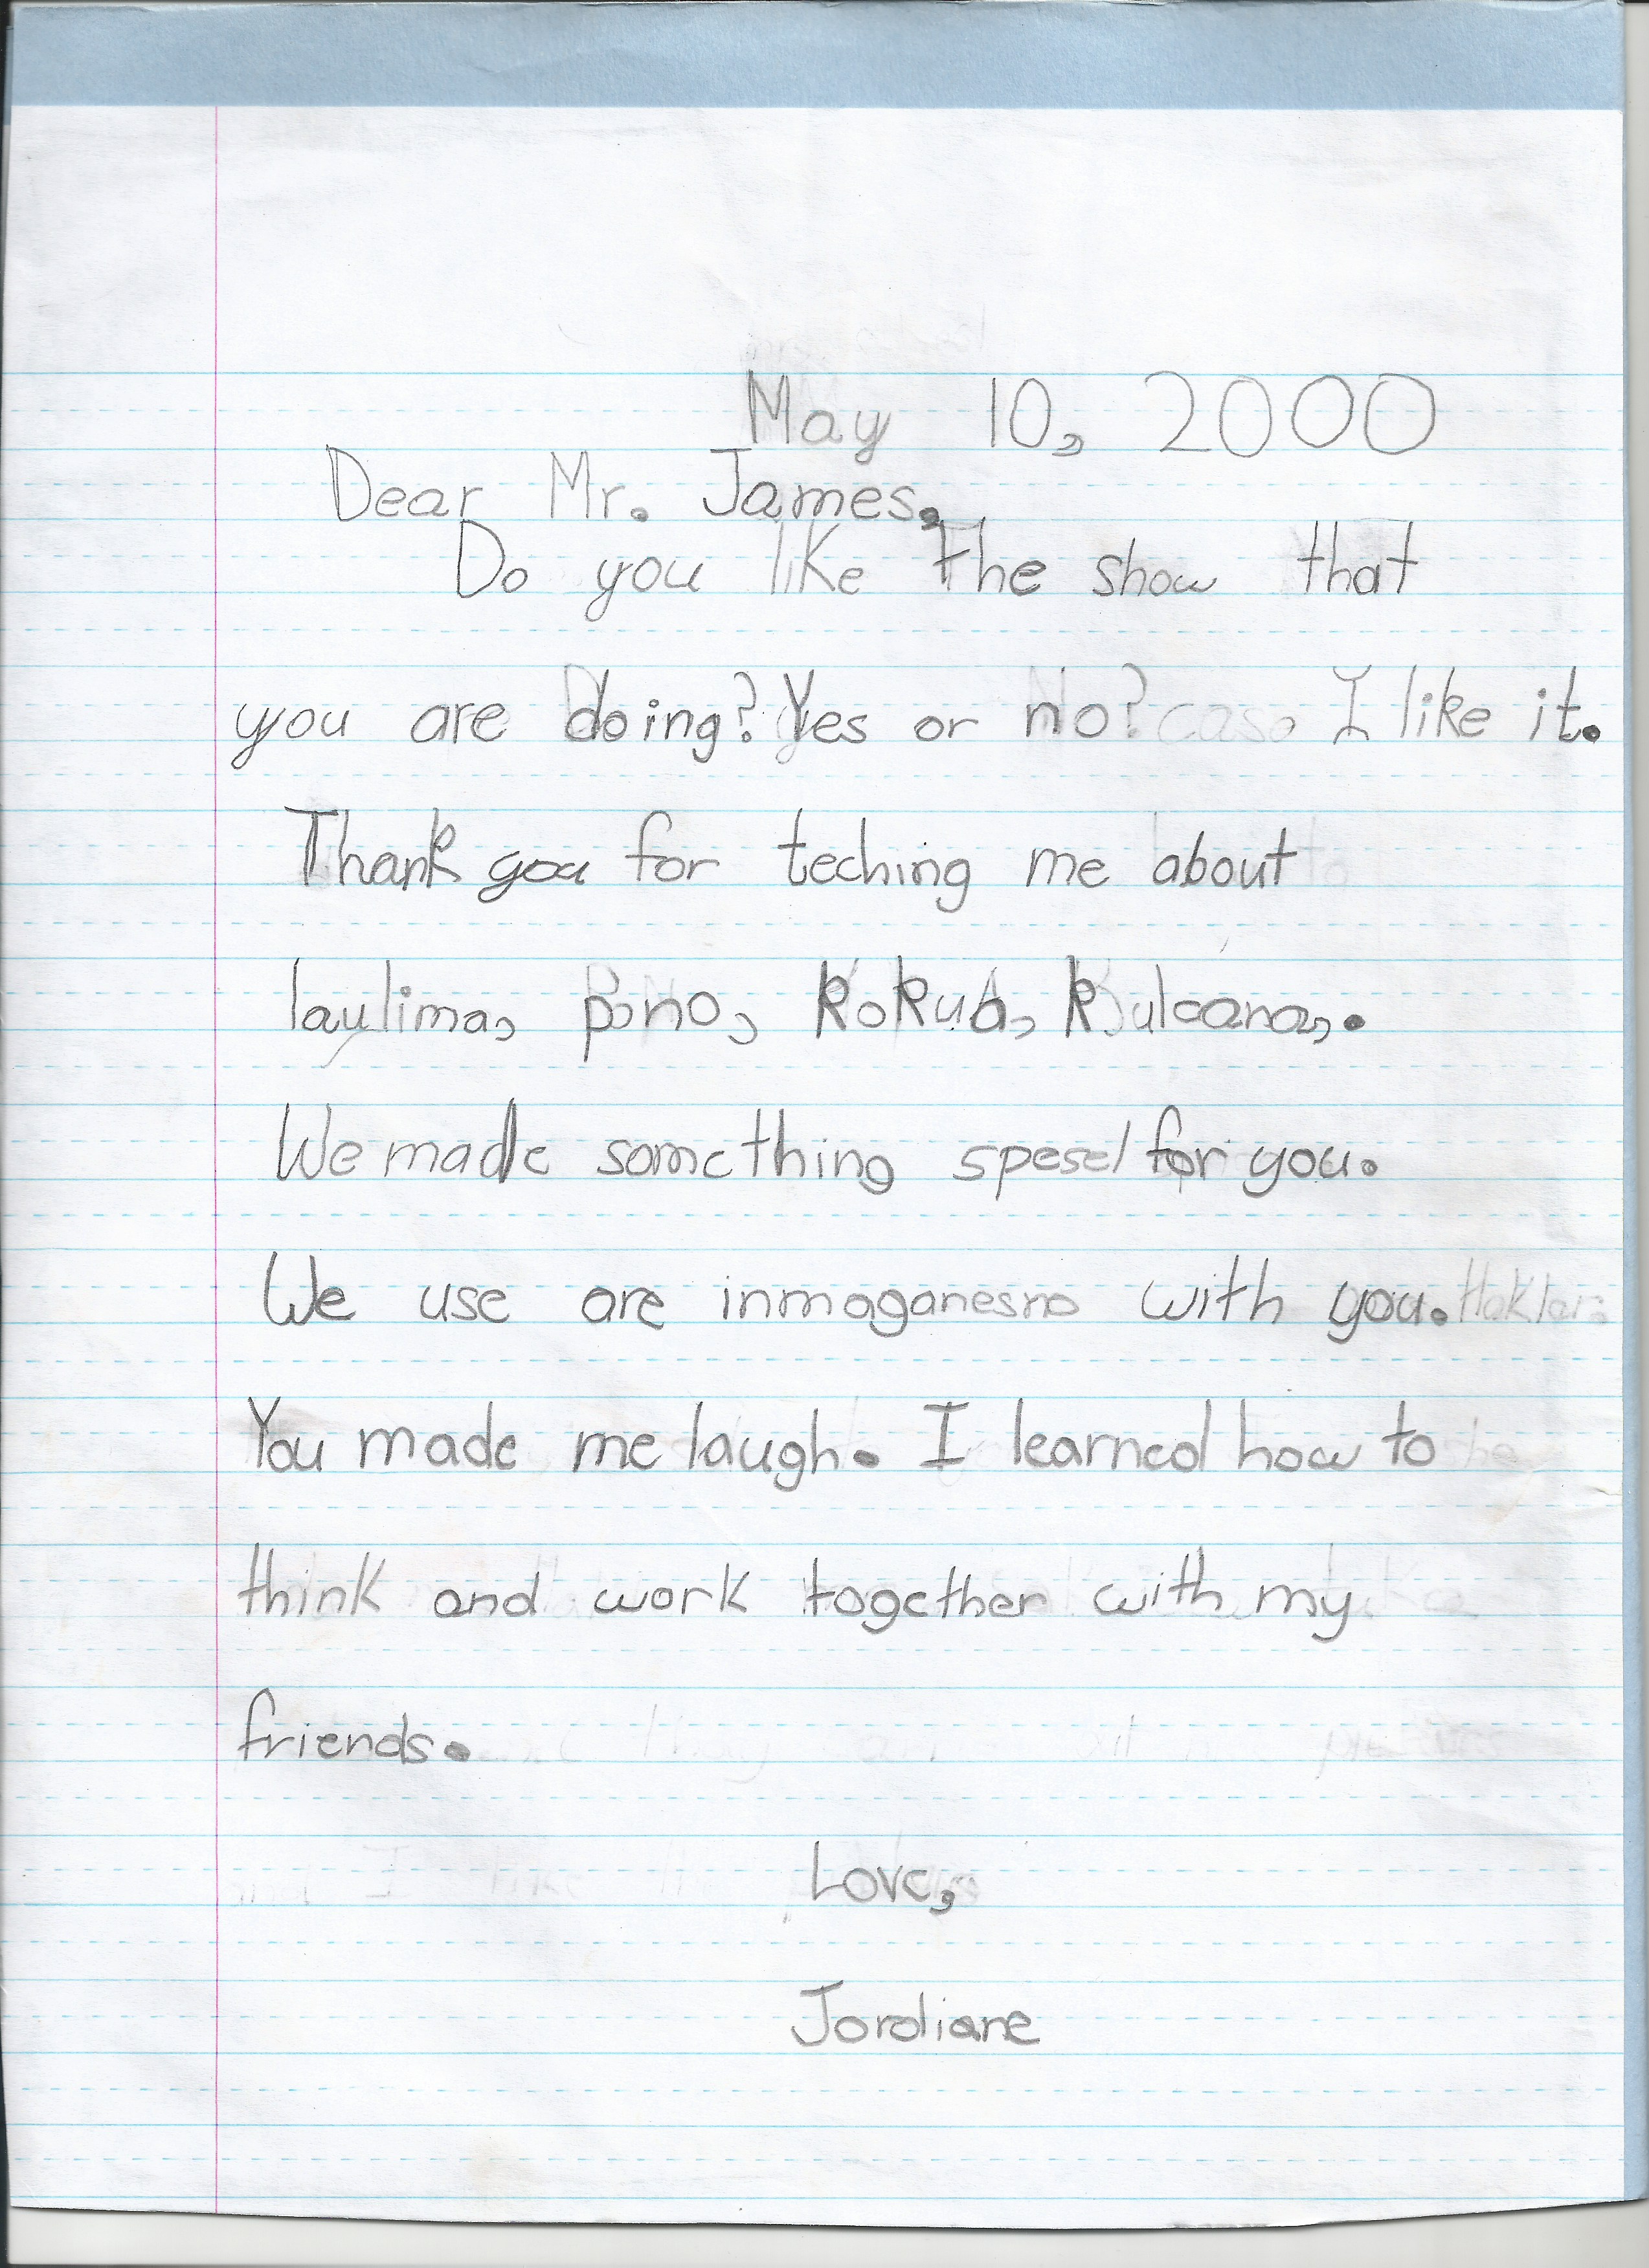 May 10, 2000
Dear Mr. James,
Do you like the show that
you are doing? Yes or no? I like it.
Thank you for teching me about
laulima, pono, kokua, kuleana,.
We made something spesel for you.
We use are inmaganesno with you.
You made me laugh. I learned how to
think and work together with my
friends.
Love,
Jordiane